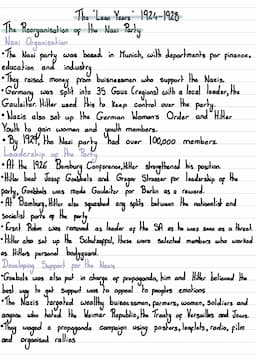 The 'Lean Years' 1924-1928
The Reorganisation of the Nazi Party
Nazi Organisation
• The Nazi party was based in Munich, with departments for finance,
education and industry
• They raised money from buisnessmen who support the Nazis.
• Germany was split into 35 Gaus (regions) with a local leader, the
Gauleiter. Hitler used this to keep control over the party.
• Nazis also set up the German Women's Order and Hitler
Youth to gain women and youth members.
• By 1929, the Nazi party had over 100,000 members.
Leadership of the Party
• At the 1926 Bamburg Conference, Hitler strengthened his position
• Hitler beat Josep Goebbels and Gregor Strasser for leadership of the
party, Goebbels was made Gauleiter for Berlin as a reward.
• At Bamburg, Hitler also squashed any splits between the nationalist and
socialist parts of the party
• Ernst Röhm was removed as leader of the SA as he was seen as a threat.
• Hitler also set up the Schutzstaffel, these were selected members who worked
as Hitlers personal bodyguard.
Developing Support for the Nazis
• Goebbels was also put in charge of propaganda, him and Hitler believed the
best way to get support was to appeal to peoples emotions
• The Nazis targeted wealthy buisnessmen, farmers, women, soldiers and
anyone who hated the Weimar Republic, the Treaty of Versailles and Jews.
• They waged a propaganda campaign using posters, leaflets, radio, film
and organised rallies